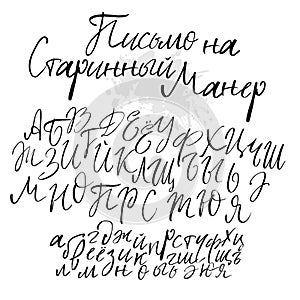 Письмо на
Старинный
Манер
А Б В Г Д Е Ё У Ф Х Ц Ч Ш
Ж З И Й К Л Щ Ъ Ы Ь Э
М Н О П Р С Т Ю Я
а б в г д ж й п р с т у ф х ц
е ё з и к ч ш щ ъ
л м н о ы ь э ю я